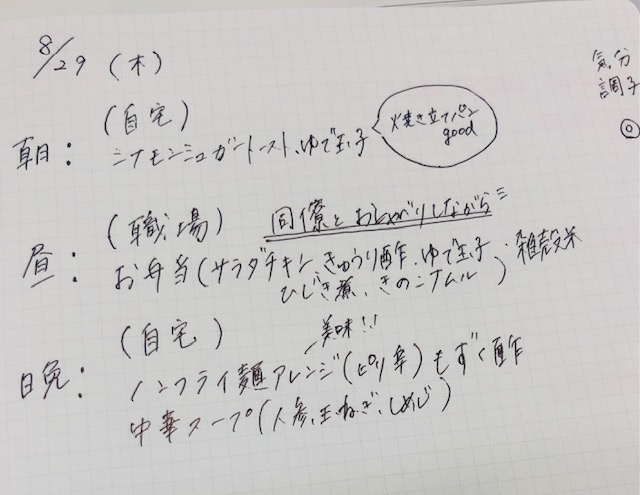 8/29 (木)
気分
調子
◎
(自宅)
朝: シナモンシュガートースト、ゆで玉子
焼き立てパン
good
(職場) 同僚とおしゃべりしながら
昼: お弁当(サラダチキン、きゅうり酢、ゆで玉子・雑穀米
ひじき煮、きのこナムル)
(自宅) 美味!!
晩: ノンフライ麺アレンジ(ピリ辛)もずく酢
中華スープ(人参、玉ねぎ、しめじ)